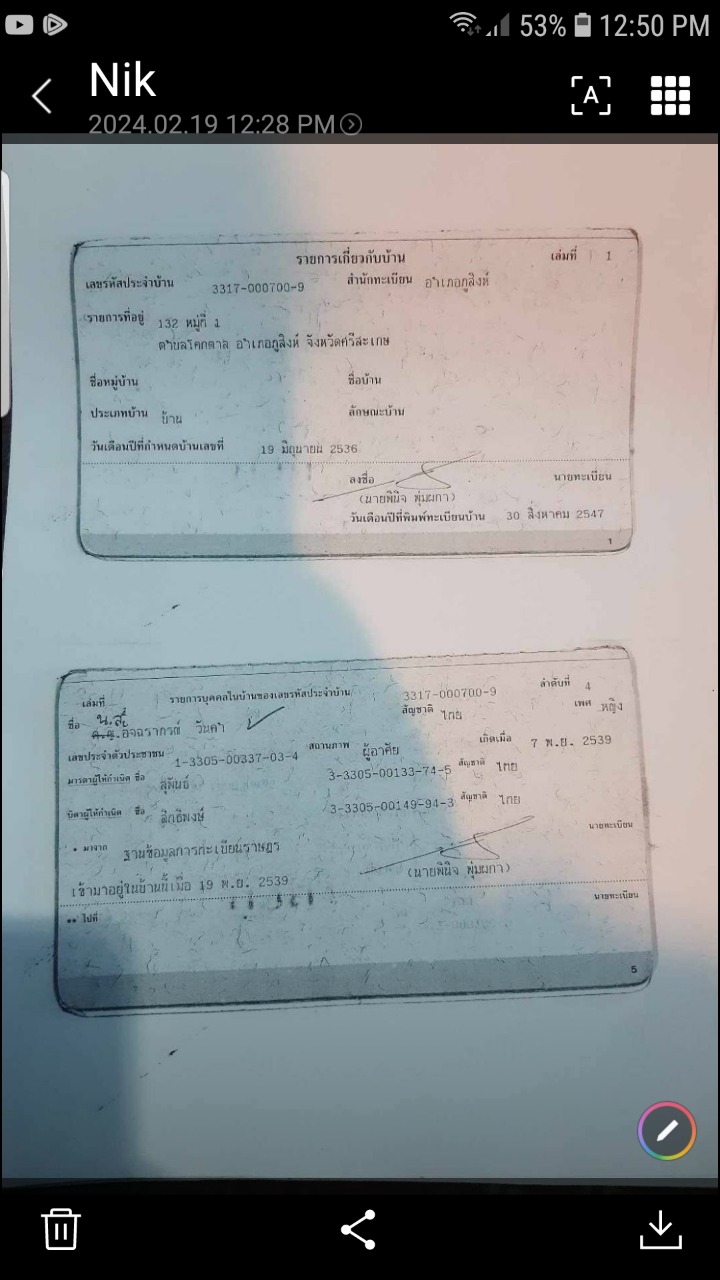 53% 12:50 PM
Nik
2024.02.19 12:28 PM
A
รายการเกี่ยวกับบ้าน เล่มที่ 1
เลขรหัสประจำบ้าน 3317-000700-9 สำนักทะเบียน อำเภอภูสิงห์
รายการที่อยู่ 132 หมู่ที่ 1
ตำบลโคกตาล อำเภอภูสิงห์ จังหวัดศรีสะเกษ
ชื่อหมู่บ้าน ชื่อบ้าน
ประเภทบ้าน บ้าน ลักษณะบ้าน
วันเดือนปีที่กำหนดบ้านเลขที่ 19 มิถุนายน 2536
ลงชื่อ นายทะเบียน
(นายพินิจ พุ่มผกา)
วันเดือนปีที่พิมพ์ทะเบียนบ้าน 30 สิงหาคม 2547
1
เล่มที่ รายการบุคคลในบ้านของเลขรหัสประจำบ้าน 3317-000700-9 ลำดับที่ 4
น.ส.
ชื่อ ด.ญ.อัจฉราภรณ์ วันคำ สัญชาติ ไทย เพศ หญิง
เลขประจำตัวประชาชน 1-3305-00337-03-4 สถานภาพ ผู้อาศัย เกิดเมื่อ 7 พ.ย. 2539
มารดาผู้ให้กำเนิด ชื่อ สุพันธ์ 3-3305-00133-74-5 สัญชาติ ไทย
บิดาผู้ให้กำเนิด ชื่อ สิทธิพงษ์ 3-3305-00149-94-3 สัญชาติ ไทย
* มาจาก ฐานข้อมูลการทะเบียนราษฎร นายทะเบียน
(นายพินิจ พุ่มผกา)
เข้ามาอยู่ในบ้านนี้เมื่อ 19 พ.ย. 2539
** ไปที่ นายทะเบียน
5